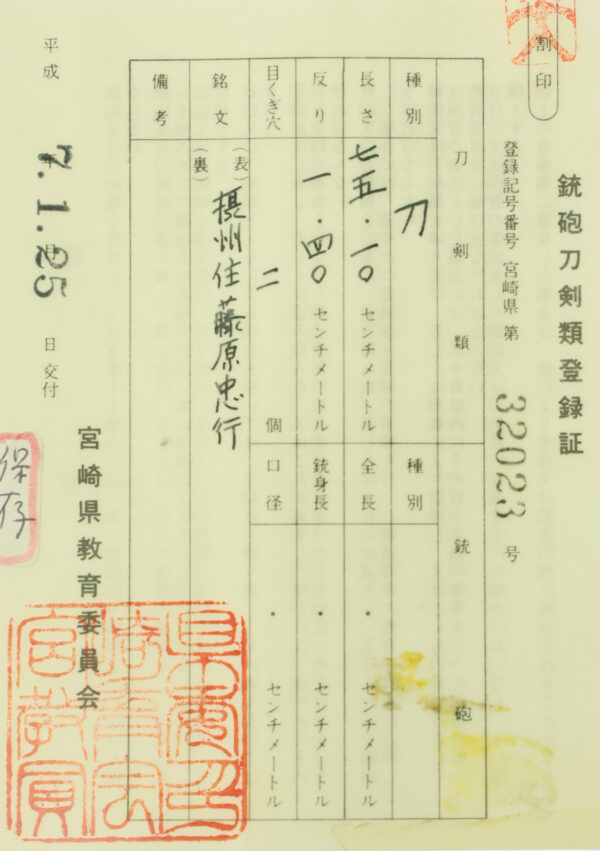 割印
銃砲刀剣類登録証
登録記号番号 宮崎県 第 32023 号
刀剣類
銃砲
種別
刀
種別
長さ
七五・一〇 センチメートル
全長
・ センチメートル
反り
一・四〇 センチメートル
銃身長
・ センチメートル
目くぎ穴
二 個
口径
・ センチメートル
銘文
(表) 摂州住藤原忠行
(裏)
備考
平成 7.1.25 日交付
宮崎県教育委員会
保存